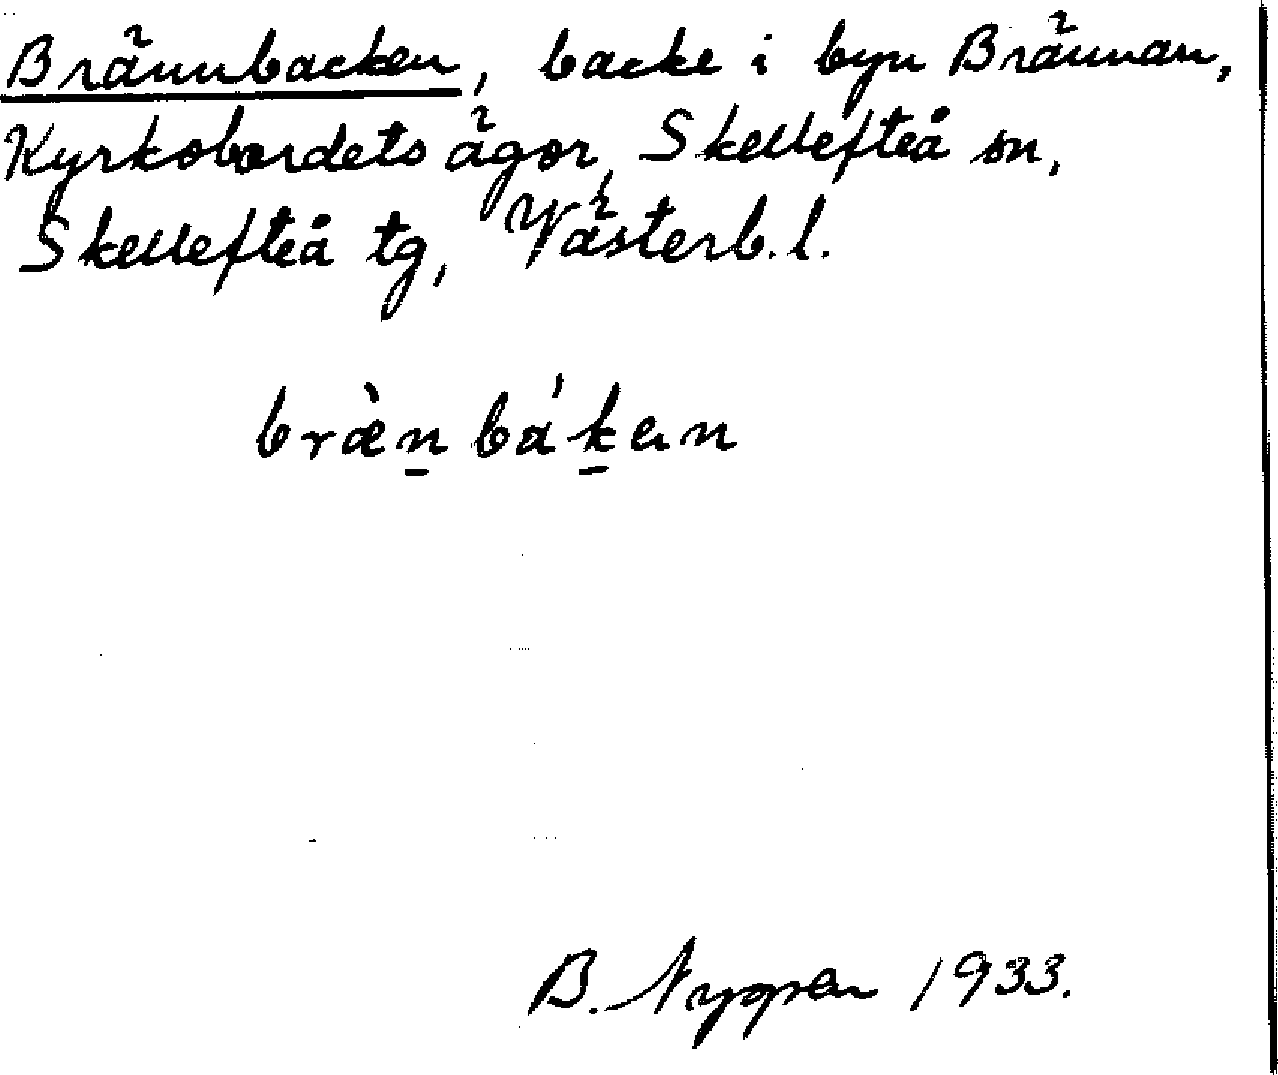 Brännbacken, backe i byn Brännan,
Kyrkobordets ägor, Skellefteå sn,
Skellefteå tg, Västerb. l.
bræ̀n̲ bá'k̲en
B. Nygren 1933.